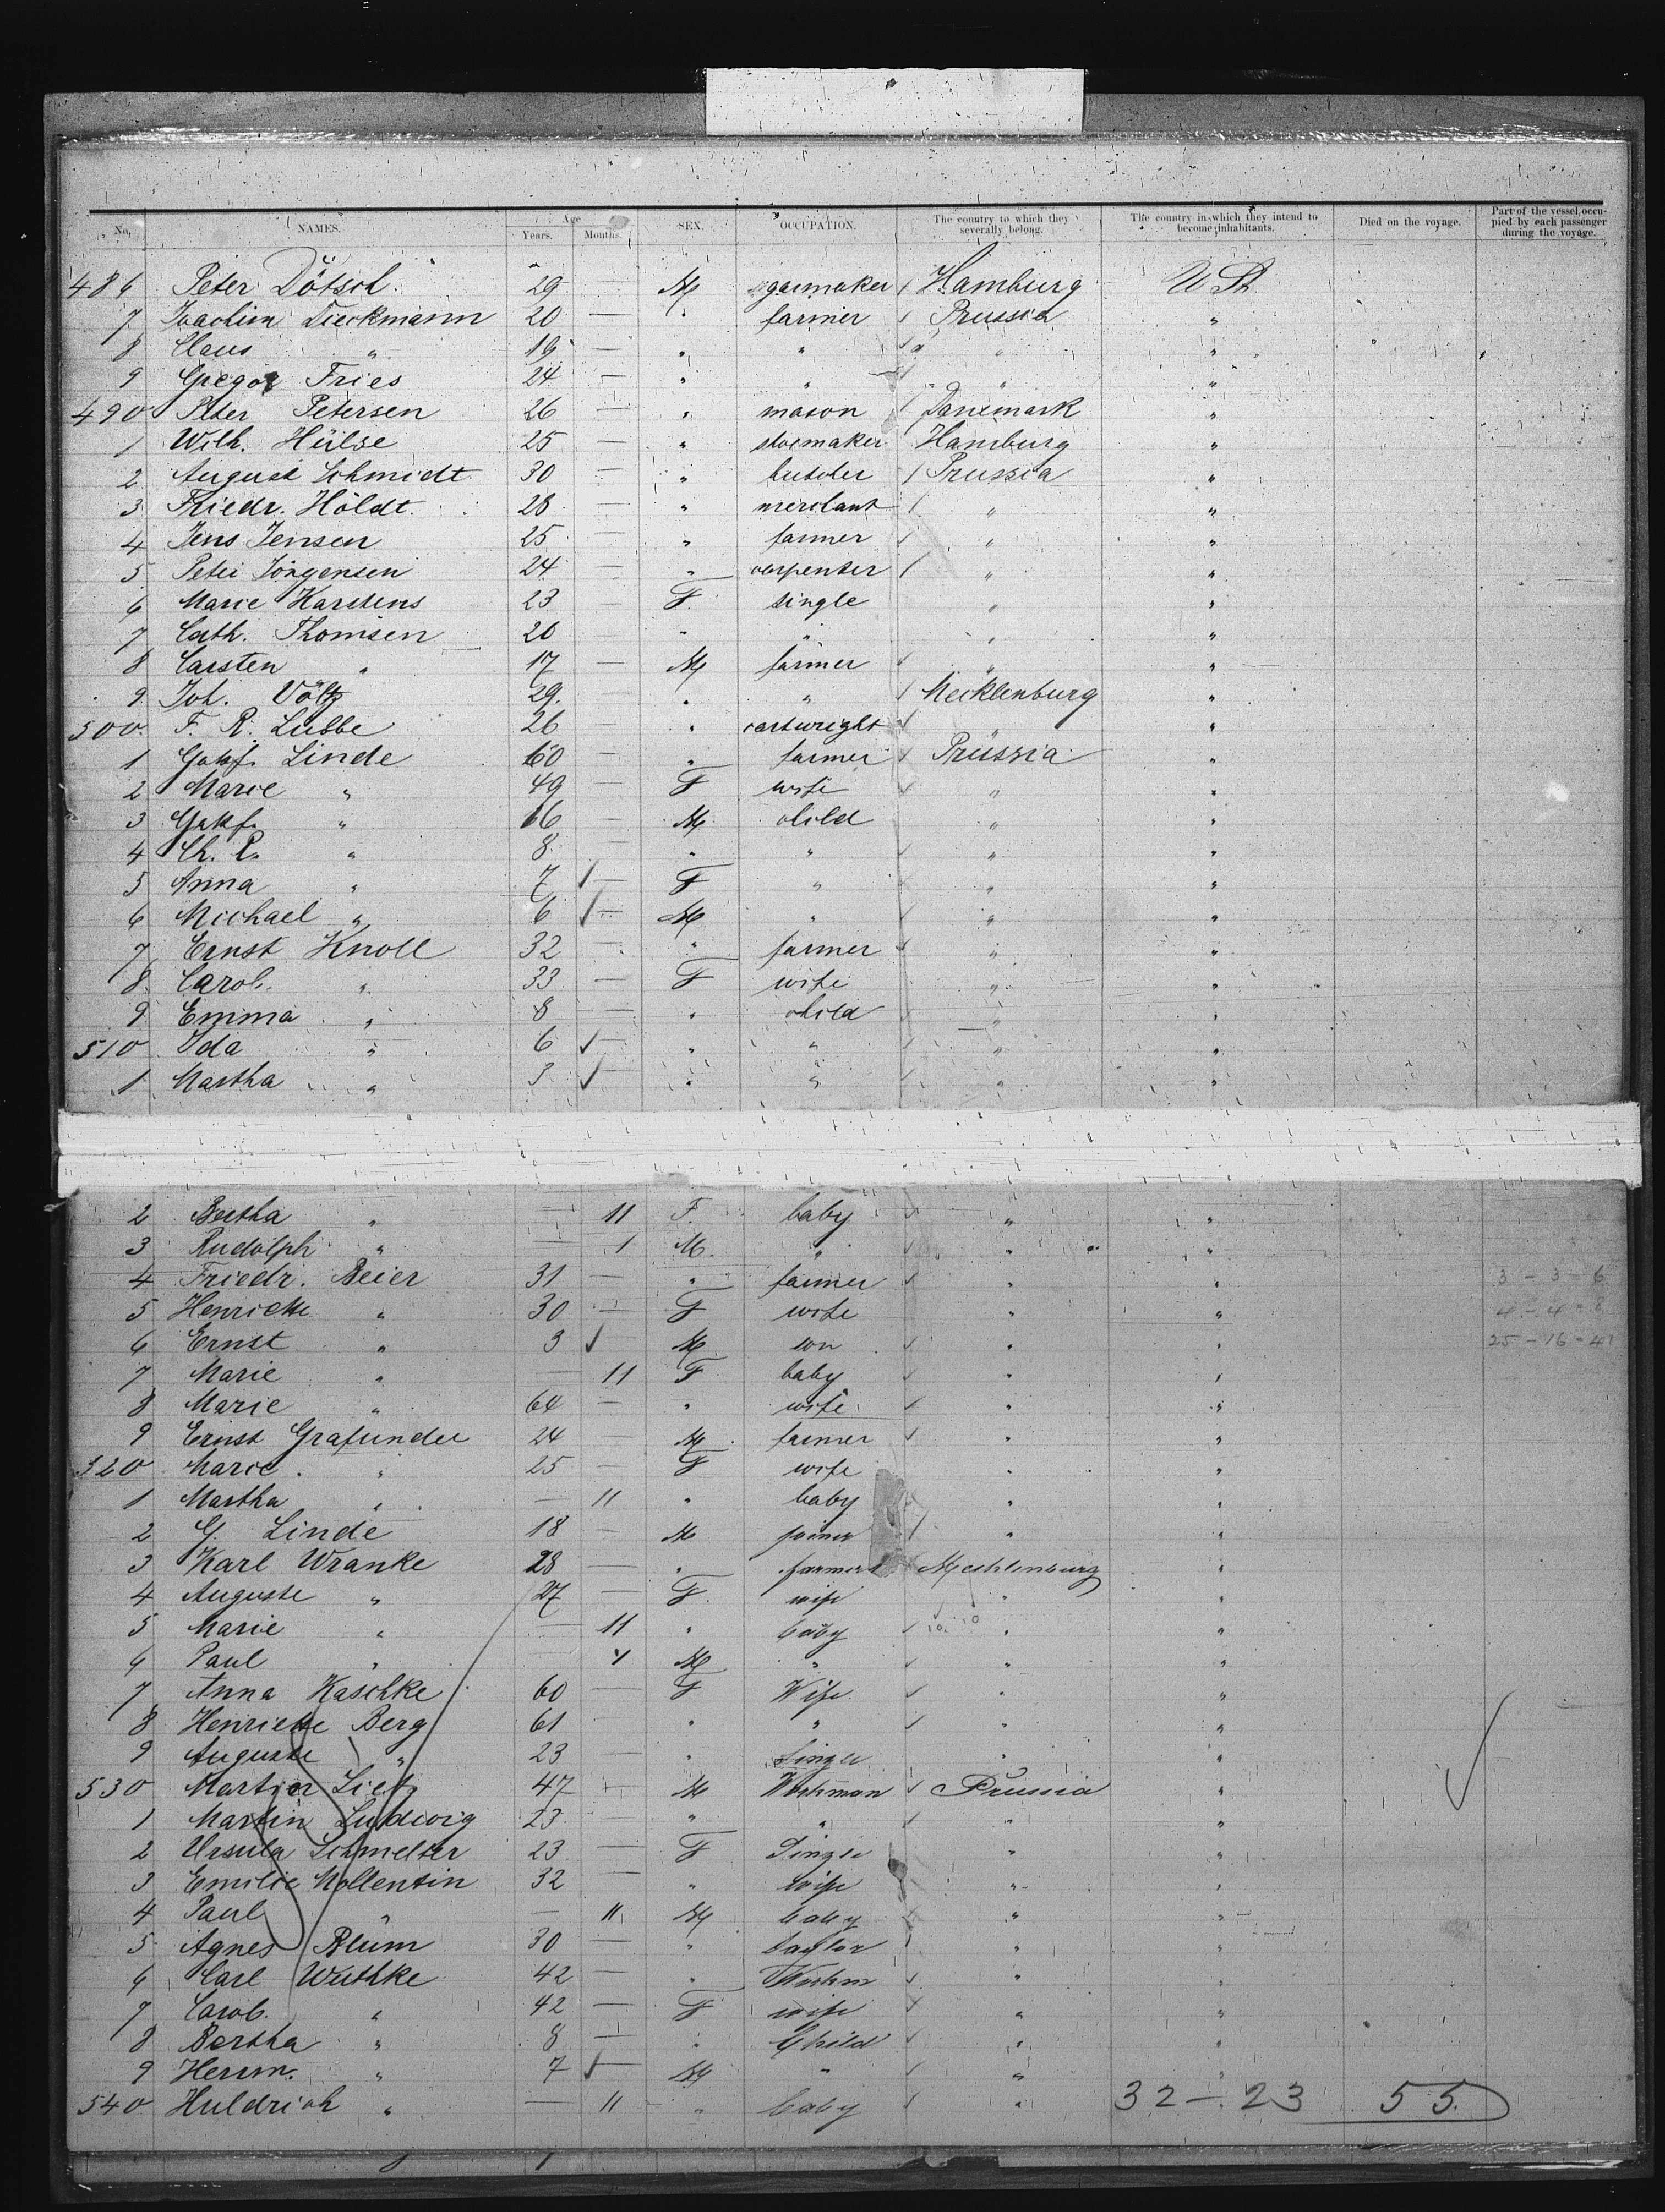 No. NAMES. Age Years. Months. SEX. OCCUPATION. The country to which they severally belong. The country in which they intend to become inhabitants. Died on the voyage. Part of the vessel occupied by each passenger during the voyage.
486 Peter Dötsch. 29 — M Hamburg U St
7 Joachim Dieckmann 20 — " farmer Prussia "
8 Claus " 19 — " " " "
9 Gregor Fries 24 — " " " "
490 Peter Petersen 26 — " mason Danemark "
1 Wilh. Hülse 25 — " shoemaker Hamburg "
2 August Schmidt 30 — " butcher Prussia "
3 Friedr. Höldt. 28 — " merchant " "
4 Jens Jensen 25 — " farmer " "
5 Peter Jörgensen 24 — " carpenter " "
6 Marie Karstens 23 — F. single " "
7 Cath. Thomsen 20 — " " " "
8 Carsten " 17 — M farmer " "
9 Joh. Völtz 29. — " " Mecklenburg "
500. F. R. Lubbe 26 — " cartwright "
1 Linde 60 — " farmer Prussia "
2 Marie " 49 — F wife " "
3 " 16 — M child " "
4 Ch. " 8 — " " " "
5 Anna " 7 ✓— F " " "
6 Michael " 6 ✓— M " " "
7 Ernst Knoll 32 — " farmer " "
8 Carol. " 33 — F wife " "
9 Emma " 8 — " child " "
510 Ida " 6 ✓— " " " "
1 Martha " 3 ✓— " " " "
2 Bertha " — 11 F. baby " "
3 Rudolph " — 1 M. " " "
4 Friedr. Beier 31 — " farmer " " 3 - 3 = 6
5 Henriette " 30 — F wife " " 4 - 4 = 8
6 Ernst " 3 ✓ M son " " 25 - 16 = 41
7 Marie " — 11 F baby " "
8 Marie " 64 — " wife " "
9 Ernst Grafunder 24 — M farmer " "
520 Marie " 25 — F wife " "
1 Martha " — 11 " baby " "
2 G. Linde 18 — M joiner " "
3 Karl Wranke 28 — " farmer Mecklenburg "
4 Auguste " 27 — F. wife " "
5 Marie " — 11 " baby " "
6 Paul " — M " " "
7 Anna Kaschke 60 — F Wife " "
8 Henriette Berg 61 — " " " "
9 Auguste " 23 — " Single " "
530 Lietz 47 — M Workman Prussia "
1 Martin Ludwig 23 " " " "
2 Ursula Schmelter 23 — F Single " "
3 Emilie Mollentin 32 — " wife " "
4 Paul " — 11 M baby " "
5 Agnes Blum 30 — " " "
6 Carl Wuthke 42 — " Workm " "
7 Carol. " 42 — F wife " "
8 Bertha " 8 — " Child " "
9 Herm. " 7 ✓— M " " "
540 Huldrich " — 11 " baby " 32 — 23 55.